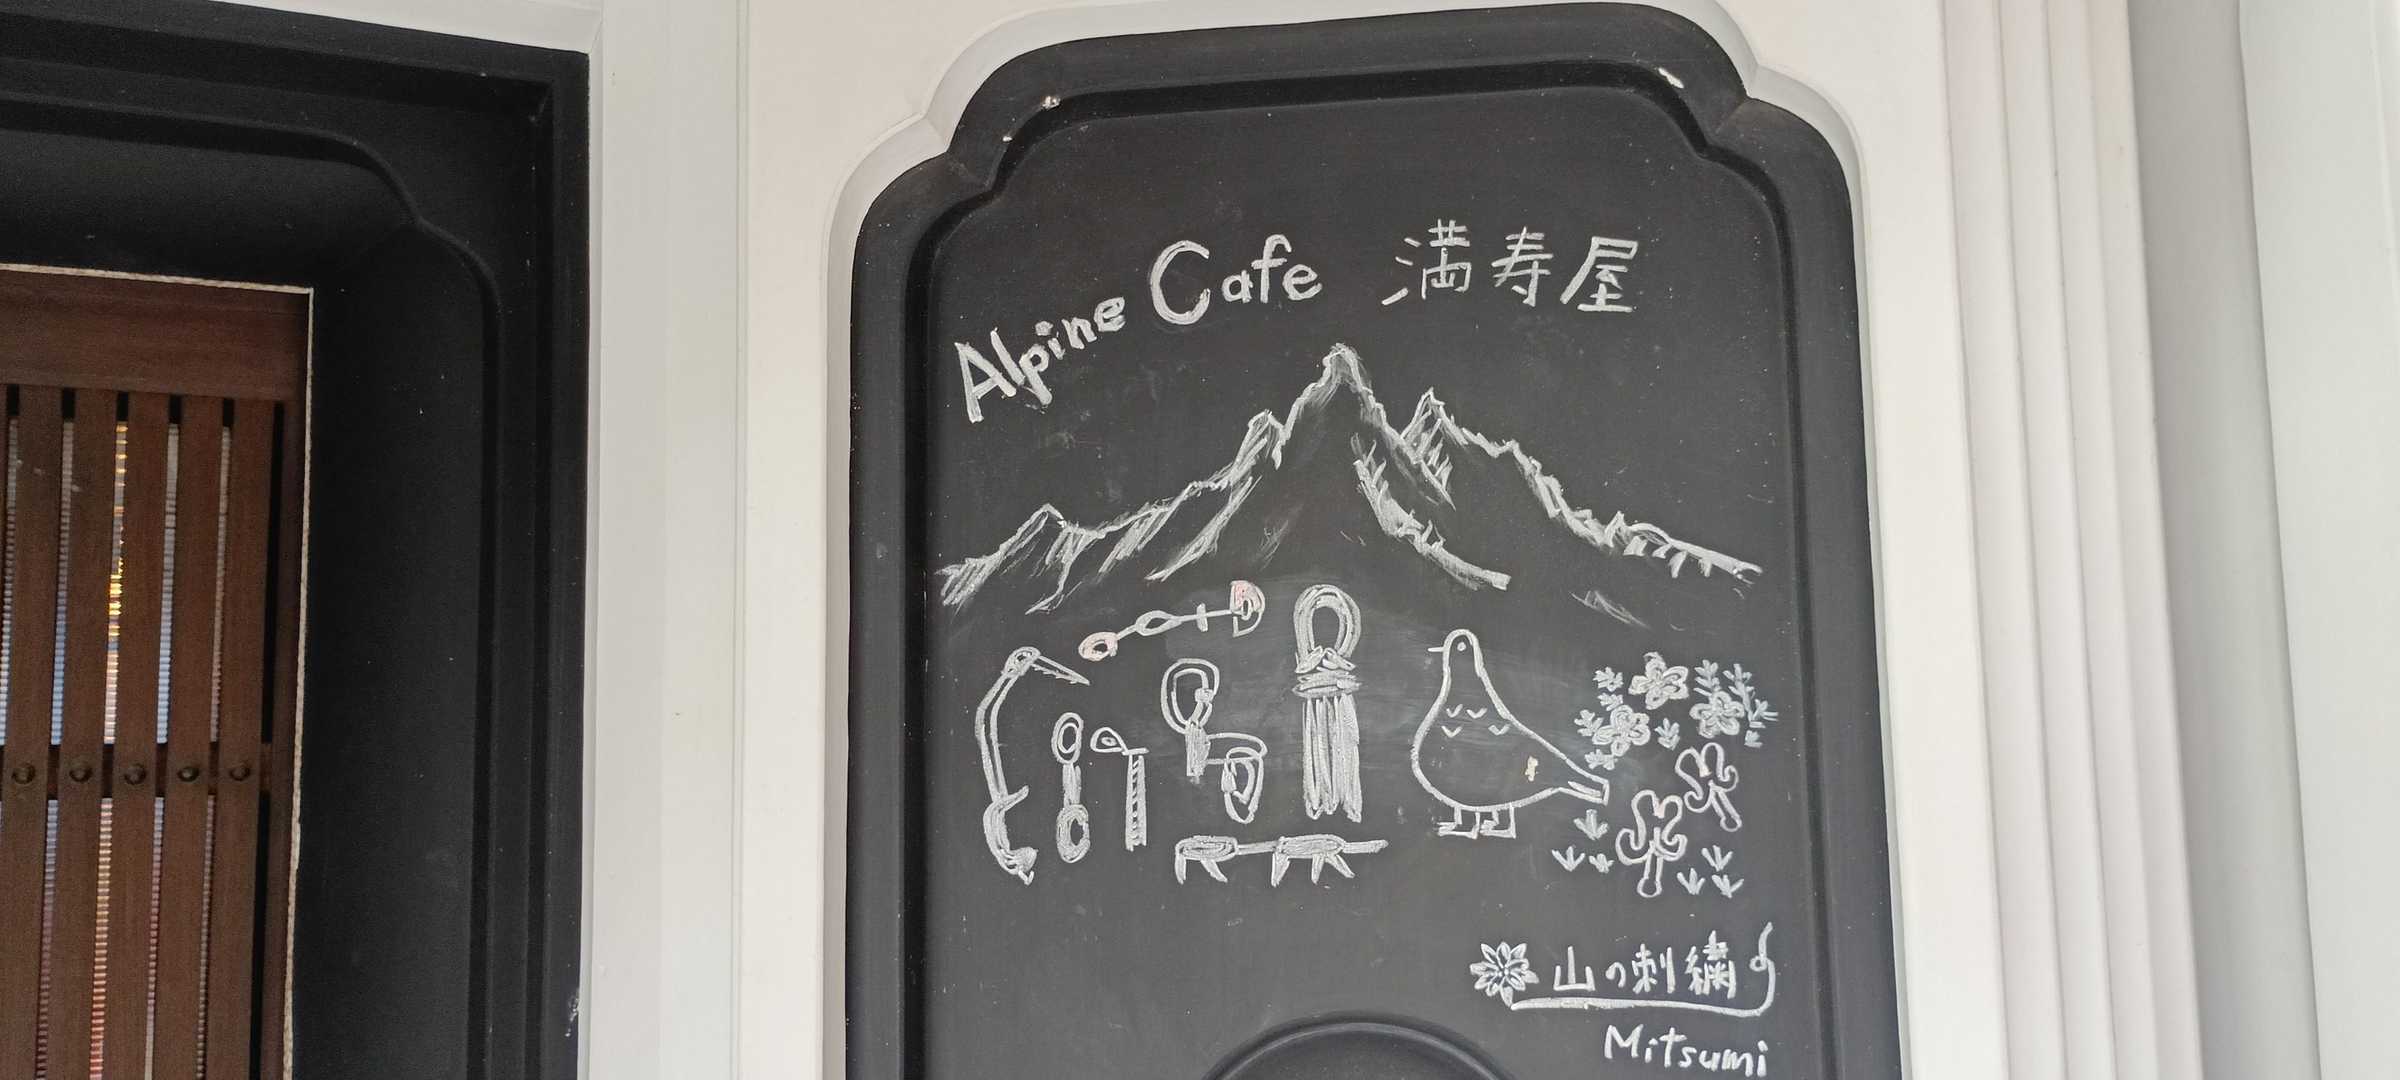 Alpine Cafe 満寿屋
山の刺繍
Mitsumi